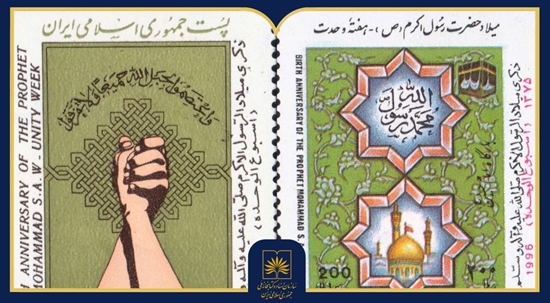 پست جمهوری اسلامی ایران
واعتصموا بحبل الله جمیعا ولا تفرقوا
H ANNIVERSARY OF THE PROPHET
MOHAMMAD S.A.W - UNITY WEEK
ذکری میلاد الرسول الاکرم صلی الله علیه و آله و
(اسبوع الوحدة)
میلاد حضرت رسول اکرم (ص)، هفتهٔ وحدت
BIRTH ANNIVERSARY OF THE PROPHET MOHAMMAD S.
الله
محمد رسول
ذکری میلاد الرسول الاکرم صلی الله علیه و آله و سلم
(اسبوع الوحدة)
۱۳۷۵
1996
200
۲۰۰
سازمان اسناد و کتابخانه ملی
جمهوری اسلامی ایران